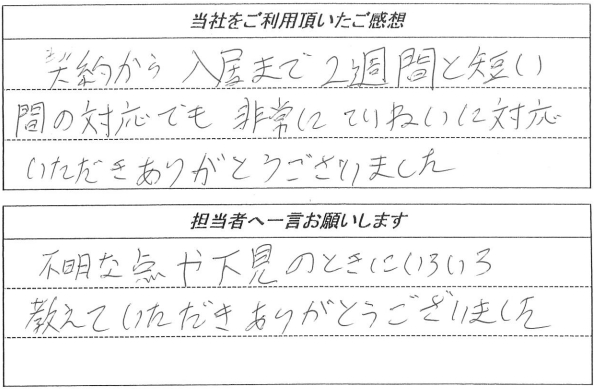 当社をご利用頂いたご感想
契約から入居まで2週間と短い
間の対応でも非常にていねいに対応
いただきありがとうございました
担当者へ一言お願いします
不明な点や下見のときにいろいろ
教えていただきありがとうございました